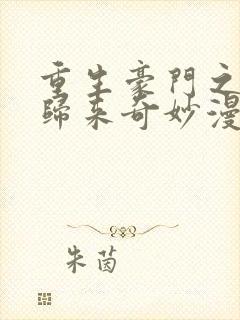 重生豪門之
歸來奇妙漫
朱茵